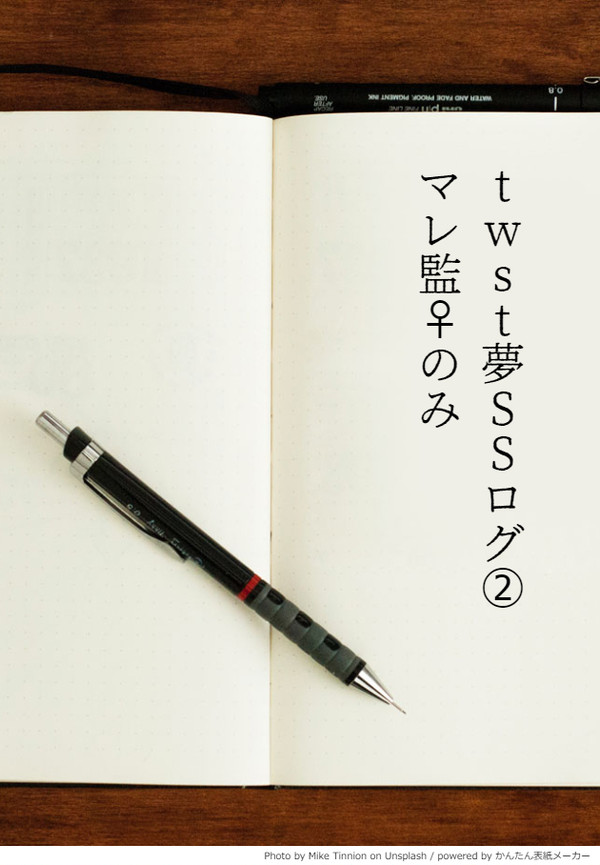 twst夢SSログ②
マレ監♀のみ
uni pin FINE LINE
WATER AND FADE PROOF, PIGMENT INK
RECAP
AFTER
USE
0.8
Photo by Mike Tinnion on Unsplash / powered by かんたん表紙メーカー